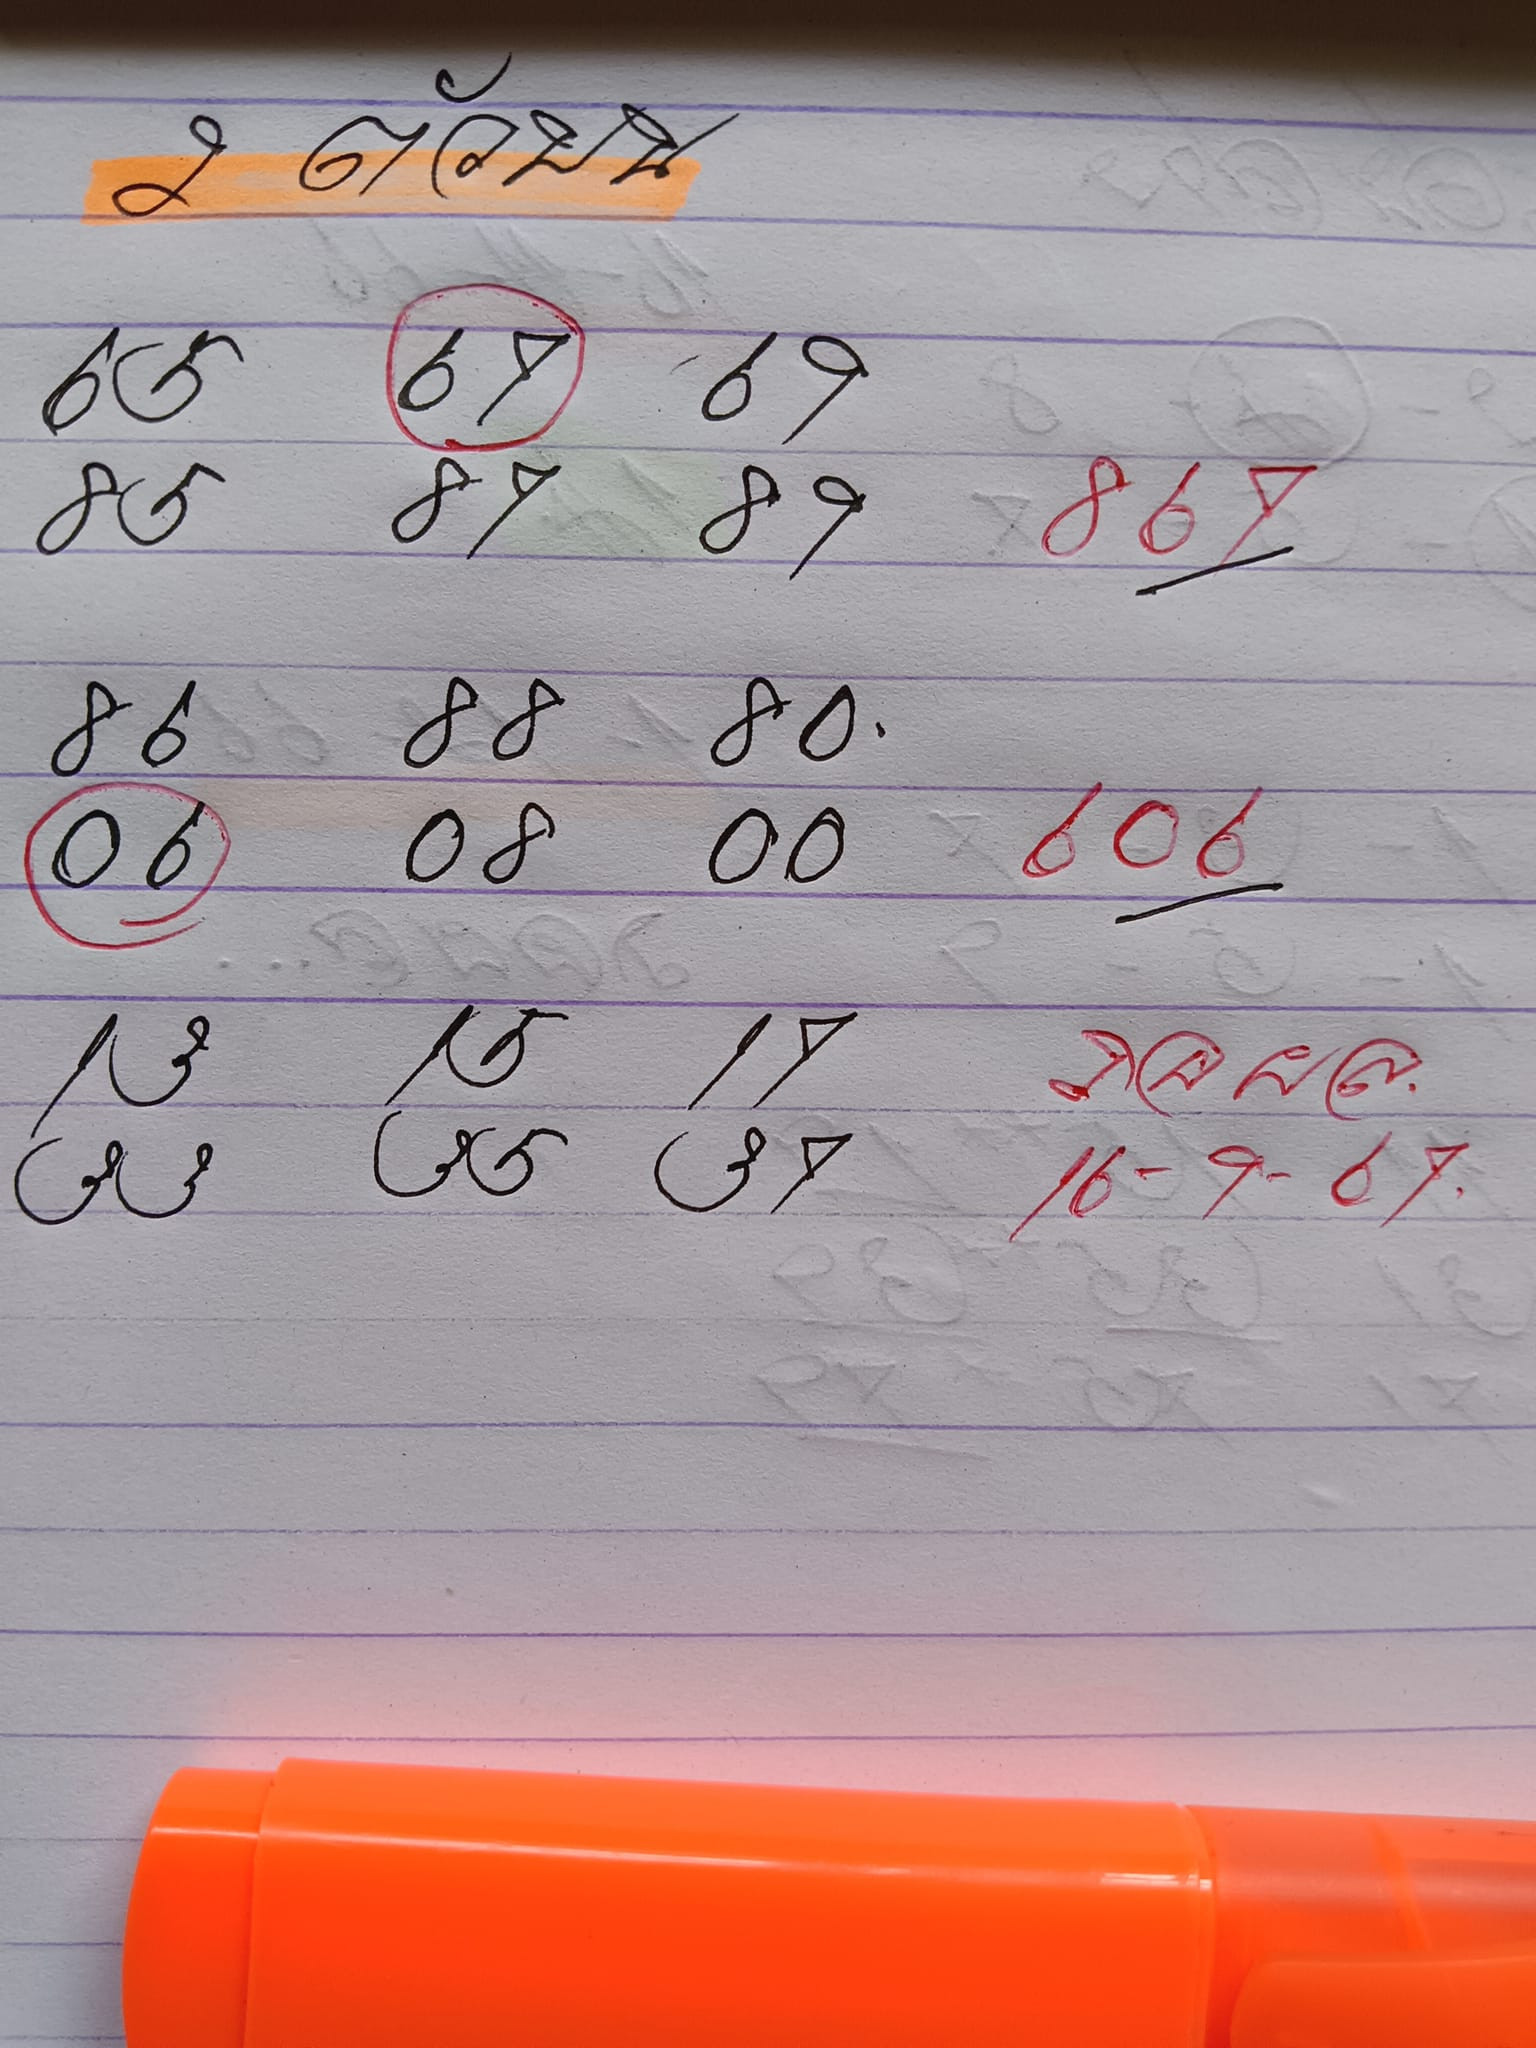 2 ตัวบน
65 67 69
85 87 89 867
86 88 80.
06 08 00 606
13 15 17 รอผล.
33 35 37 16-9-67.